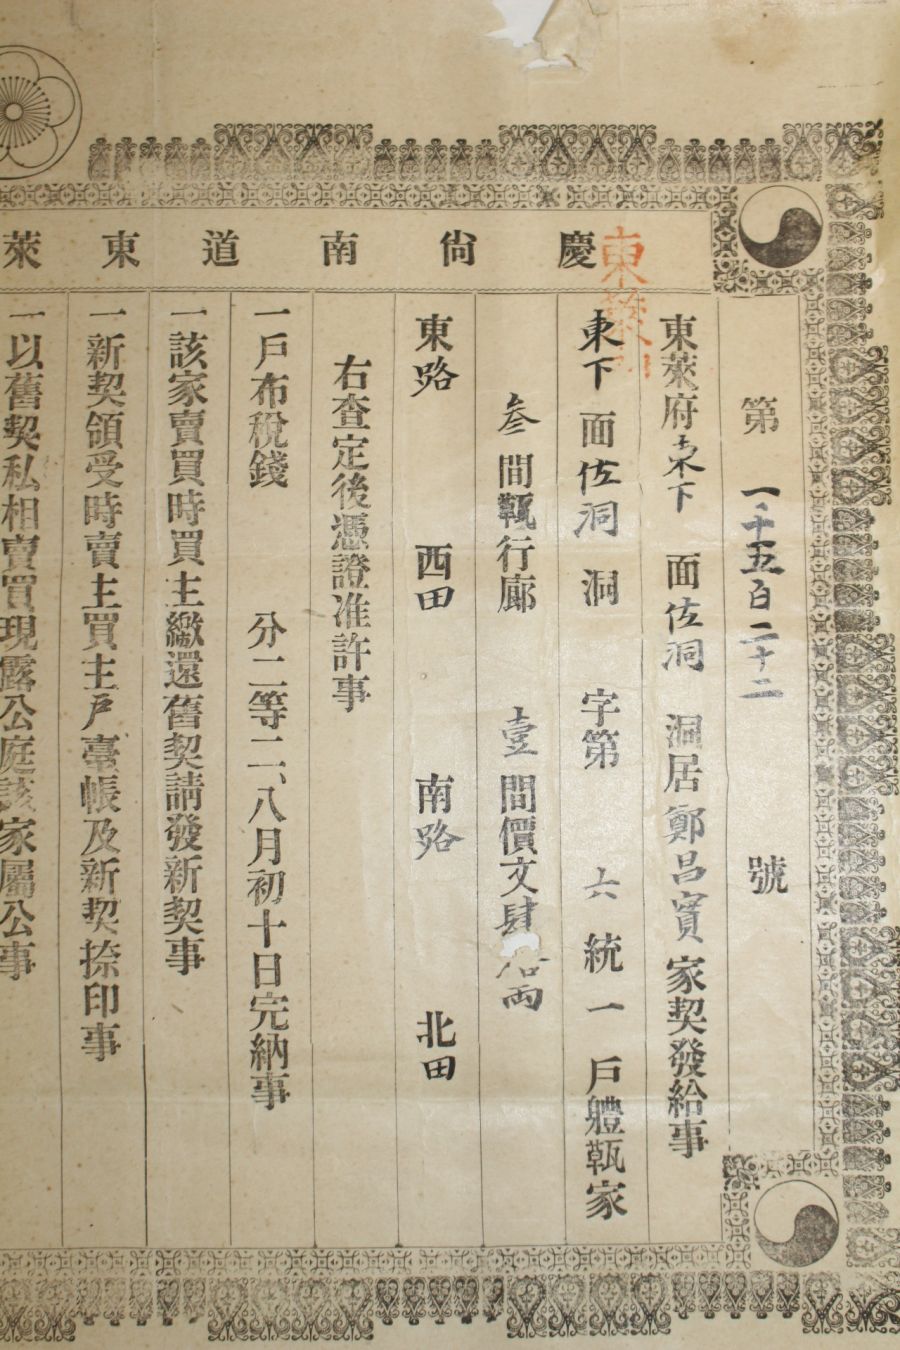 慶尙南道東萊
第一千五百二十二號
東萊府東下面佐洞洞居鄭昌實家契發給事
東下面佐洞洞字第六統一戶體瓾家
參間瓾行廊壹間價文肆 兩
東路 西田 南路 北田
右查定後憑證准許事
一戶布稅錢 分二等二、八月初十日完納事
一該家賣買時買主繳還舊契請發新契事
一新契領受時賣主買主戶臺帳及新契捺印事
一以舊契私相賣買現露公庭該家屬公事
東萊